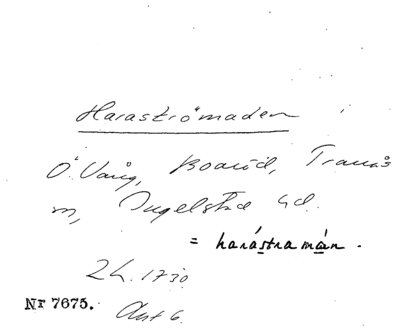 Haraströmaden
Ö. Vång, Boaröd, Tranås
m, Ingelstad hd.
= harástramán.
Lh. 1730
Nr 7675. Akt 6